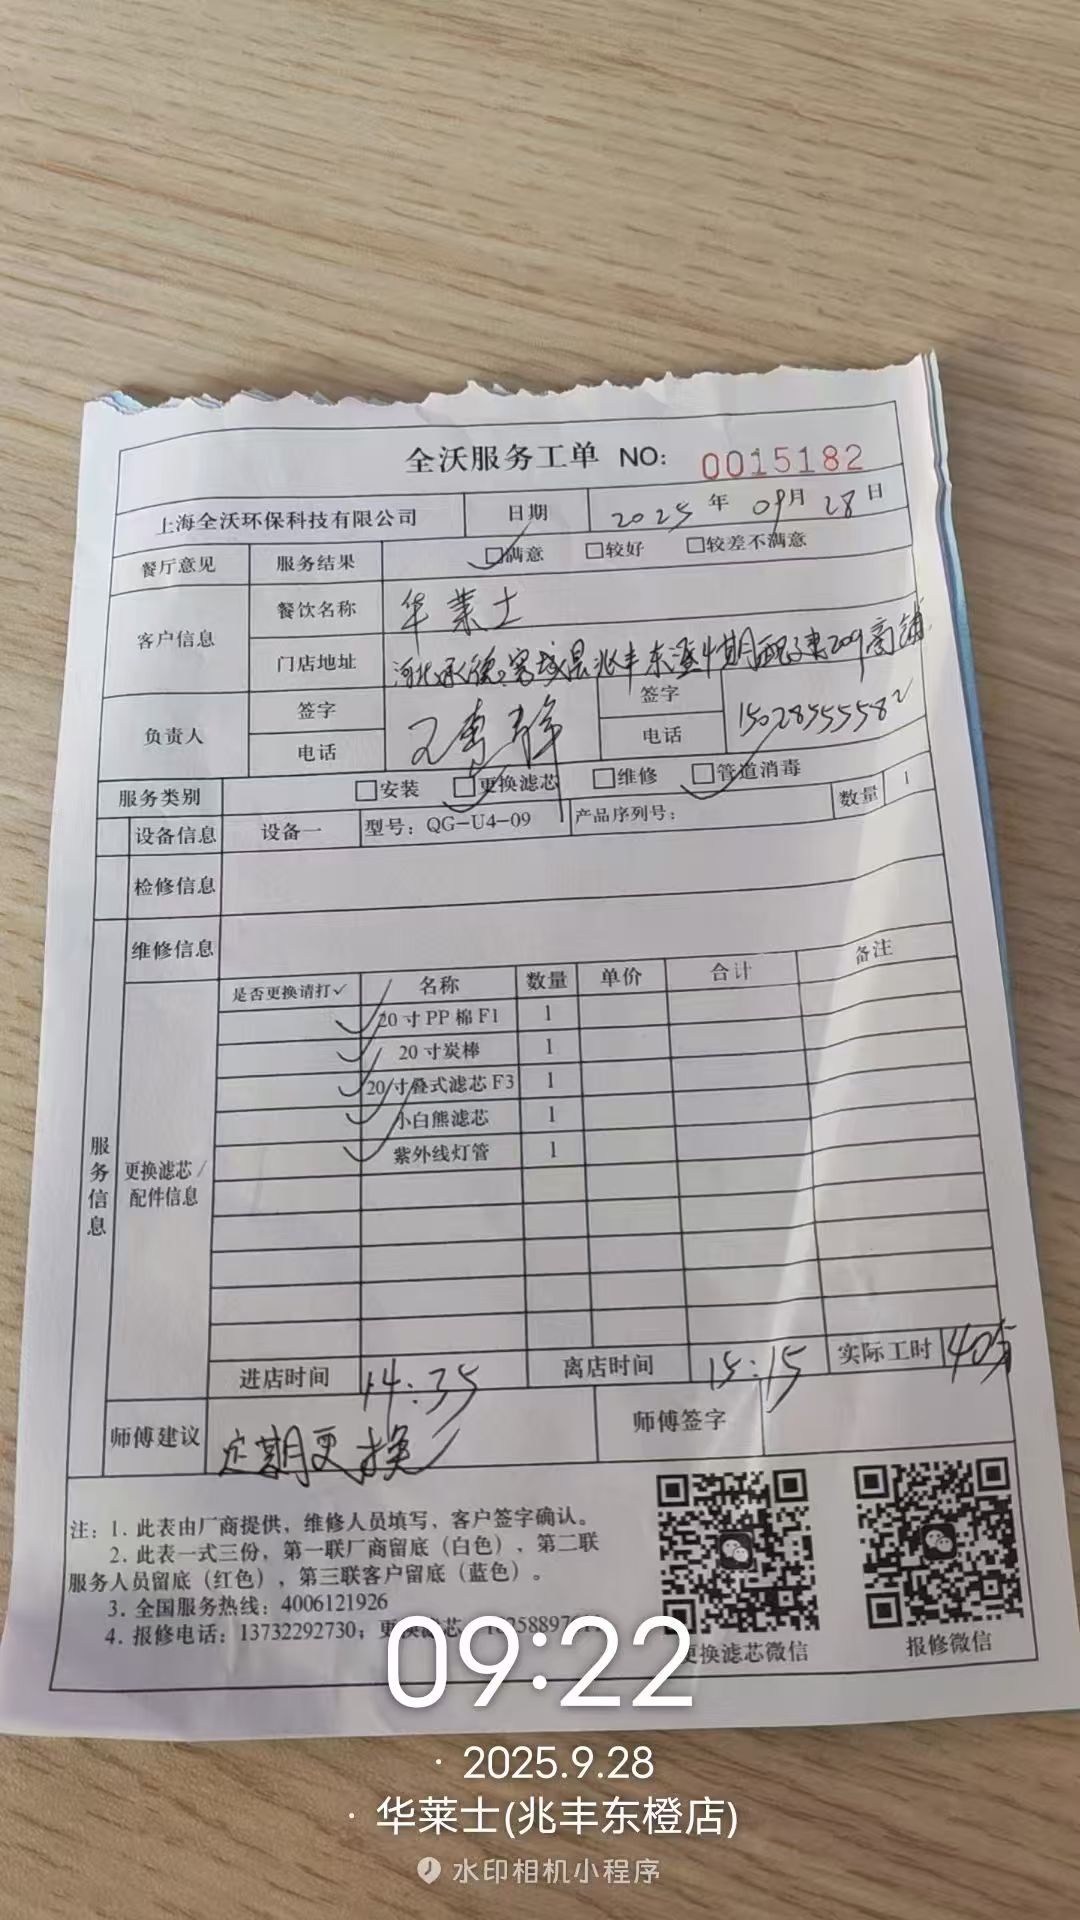 全沃服务工单 NO: 0015182
上海全沃环保科技有限公司 日期 2025 年 09 月 28 日
餐厅意见 服务结果 ☑满意 □较好 □较差不满意
客户信息 餐饮名称 华莱士
门店地址 河北承德 县兆丰东澄 期配建209商铺
负责人 签字 签字
电话 电话 15028555582
服务类别 □安装 ☑更换滤芯 □维修 ☑管道消毒
设备信息 设备一 型号：QG-U4-09 产品序列号： 数量 1
检修信息
维修信息
服务信息
更换滤芯/配件信息
是否更换请打✓ 名称 数量 单价 合计 备注
✓ 20寸PP棉F1 1
✓ 20寸炭棒 1
✓ 20寸叠式滤芯F3 1
✓ 小白熊滤芯 1
✓ 紫外线灯管 1
进店时间 14:35 离店时间 15:15 实际工时 40分
师傅建议 定期更换 师傅签字
注：1. 此表由厂商提供，维修人员填写，客户签字确认。
2. 此表一式三份，第一联厂商留底（白色），第二联
服务人员留底（红色），第三联客户留底（蓝色）。
3. 全国服务热线：4006121926
4. 报修电话：13732292730；更换滤芯
更换滤芯微信 报修微信
09:22
· 2025.9.28
· 华莱士(兆丰东橙店)
水印相机小程序